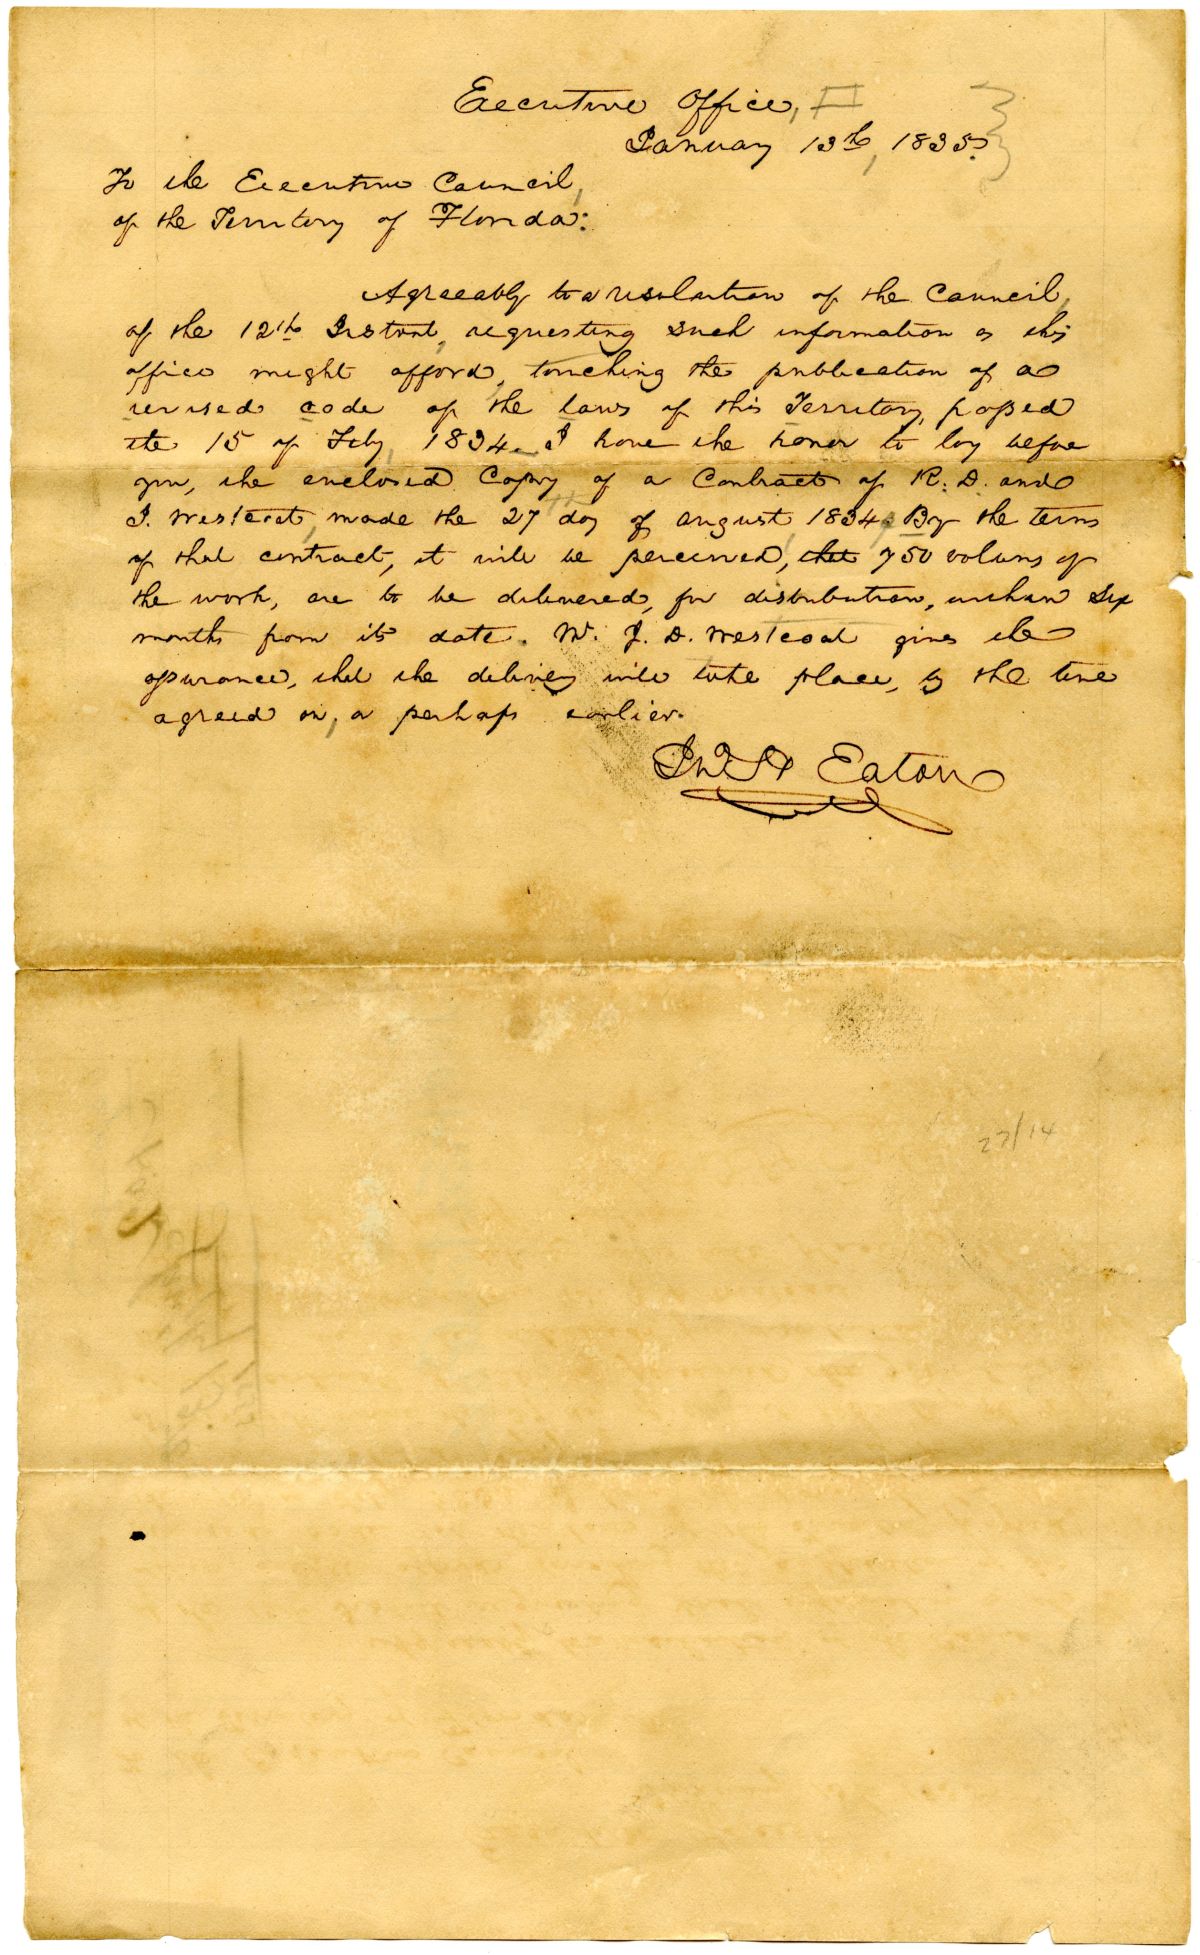 Executive Office,
January 13th, 1835.
To the Executive Council,
of the Territory of Florida:
Agreeably to a resolution of the Council,
of the 12th Instant, requesting such information as this
office might afford, touching the publication of a
revised code of the laws of this Territory, passed
the 15 of Feby, 1834. I have the honor to lay before
you, the enclosed Copy of a Contract of R. D. and
J. Westcott, made the 27 day of august, 1834. By the terms
of that contract, it will be perceived, that 750 volums of
the work, are to be delivered, for distribution, within Six
months from its date. Mr. J. D. Westcoat gives the
assurance, that the delivery will take place, by the time
agreed on, or perhaps earlier.
Jno H Eaton
27/14